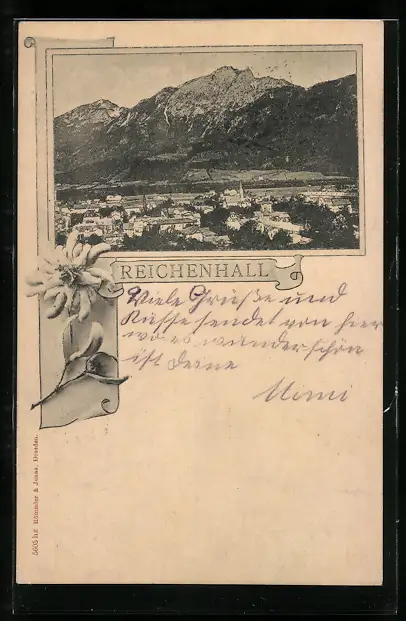 REICHENHALL
Viele Grüße und
Küsse sendet von hier
wo es wunderschön
ist Deine
Mimi
5605 h.f. Römmler & Jonas, Dresden.